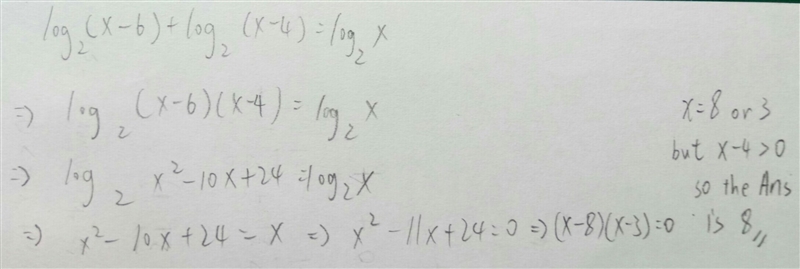 log₂(x-6)+log₂(x-4)=log₂x
⇒ log₂(x-6)(x-4)=log₂x
⇒ log₂ x²-10x+24=log₂x
⇒ x²-10x+24=x ⇒ x²-11x+24=0 ⇒(x-8)(x-3)=0
x=8 or 3
but x-4>0
so the Ans
is 8,,